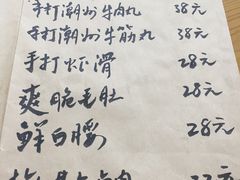 手打潮州牛肉丸 38元
手打潮州牛筋丸 38元
手打虾滑 28元
爽脆毛肚 28元
鲜白腰 28元
肉 元